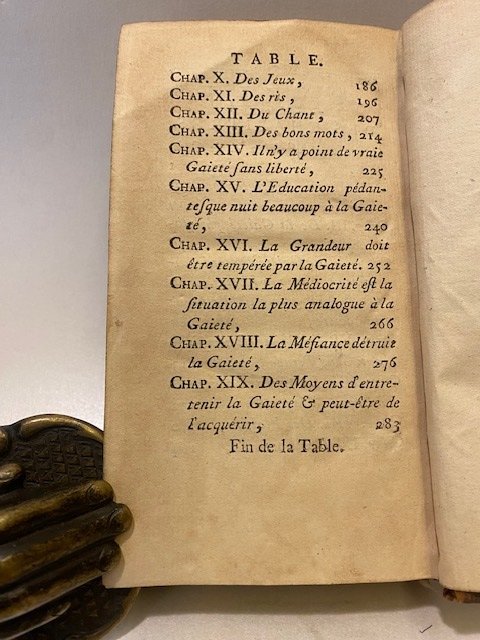 TABLE.
CHAP. X. Des Jeux, 186
CHAP. XI. Des ris, 196
CHAP. XII. Du Chant, 207
CHAP. XIII. Des bons mots, 214
CHAP. XIV. Il n'y a point de vraie
Gaieté ſans liberté, 225
CHAP. XV. L'Education pédan-
teſque nuit beaucoup à la Gaie-
té, 240
CHAP. XVI. La Grandeur doit
être tempérée par la Gaieté. 252
CHAP. XVII. La Médiocrité eſt la
ſituation la plus analogue à la
Gaieté, 266
CHAP. XVIII. La Méfiance détruit
la Gaieté, 276
CHAP. XIX. Des Moyens d'entre-
tenir la Gaieté & peut-être de
l'acquérir, 283
Fin de la Table.